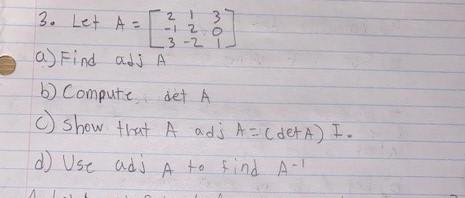 3. Let A = [ 2 1 3
-1 2 0
3 -2 1 ]
a) Find adj A
b) Compute det A
c) Show that A adj A = (det A) I.
d) Use adj A to find A-1